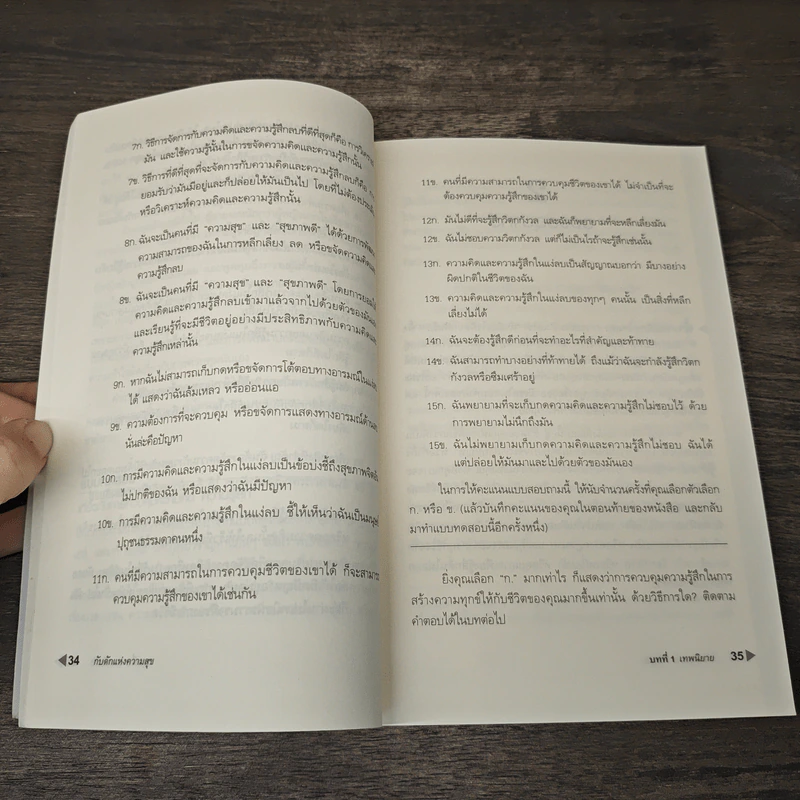 7ก. วิธีการจัดการกับความคิดและความรู้สึกลบที่ดีที่สุดก็คือ
มัน และใช้ความรู้นั้นในการขจัดความคิดและความรู้สึกนั้น
7ข. วิธีการที่ดีที่สุดที่จะจัดการกับความคิดและความรู้สึกลบก็คือ
ยอมรับว่ามันมีอยู่และก็ปล่อยให้มันเป็นไป โดยที่ไม่ต้อง
หรือวิเคราะห์ความคิดและความรู้สึกนั้น
8ก. ฉันจะเป็นคนที่มี "ความสุข" และ "สุขภาพดี" ได้ด้วยการ
ความสามารถของฉันในการหลีกเลี่ยง ลด หรือขจัดความคิดและ
ความรู้สึกลบ
8ข. ฉันจะเป็นคนที่มี "ความสุข" และ "สุขภาพดี" โดยการ
ความคิดและความรู้สึกลบเข้ามาแล้วจากไปด้วยตัวของมันเอง
และเรียนรู้ที่จะมีชีวิตอยู่อย่างมีประสิทธิภาพกับความคิดและ
ความรู้สึกเหล่านั้น
9ก. หากฉันไม่สามารถเก็บกดหรือขจัดการโต้ตอบทางอารมณ์ใน
ได้ แสดงว่าฉันล้มเหลว หรืออ่อนแอ
9ข. ความต้องการที่จะควบคุม หรือขจัดการแสดงทางอารมณ์
นั่นล่ะคือปัญหา
10ก. การมีความคิดและความรู้สึกในแง่ลบเป็นข้อบ่งชี้ถึงสุขภาพจิต
ไม่ปกติของฉัน หรือแสดงว่าฉันมีปัญหา
10ข. การมีความคิดและความรู้สึกในแง่ลบ ชี้ให้เห็นว่าฉันเป็นมนุษย์
ปุถุชนธรรมดาคนหนึ่ง
11ก. คนที่มีความสามารถในการควบคุมชีวิตของเขาได้ ก็จะสามารถ
ควบคุมความรู้สึกของเขาได้เช่นกัน
34 กับดักแห่งความสุข
11ข. คนที่มีความสามารถในการควบคุมชีวิตของเขาได้ ไม่จำเป็นที่จะ
ต้องควบคุมความรู้สึกของเขาได้
12ก. มันไม่ดีที่จะรู้สึกวิตกกังวล และฉันก็พยายามที่จะหลีกเลี่ยงมัน
12ข. ฉันไม่ชอบความวิตกกังวล แต่ก็ไม่เป็นไรถ้าจะรู้สึกเช่นนั้น
13ก. ความคิดและความรู้สึกในแง่ลบเป็นสัญญาณบอกว่า มีบางอย่าง
ผิดปกติในชีวิตของฉัน
13ข. ความคิดและความรู้สึกในแง่ลบของทุกๆ คนนั้น เป็นสิ่งที่หลีก
เลี่ยงไม่ได้
14ก. ฉันจะต้องรู้สึกดีก่อนที่จะทำอะไรที่สำคัญและท้าทาย
14ข. ฉันสามารถทำบางอย่างที่ท้าทายได้ ถึงแม้ว่าฉันจะกำลังรู้สึกวิตก
กังวลหรือซึมเศร้าอยู่
15ก. ฉันพยายามที่จะเก็บกดความคิดและความรู้สึกไม่ชอบไว้ ด้วย
การพยายามไม่นึกถึงมัน
15ข. ฉันไม่พยายามเก็บกดความคิดและความรู้สึกไม่ชอบ ฉันได้
แต่ปล่อยให้มันมาและไปด้วยตัวของมันเอง
ในการให้คะแนนแบบสอบถามนี้ ให้นับจำนวนครั้งที่คุณเลือกตัวเลือก
ก. หรือ ข. (แล้วบันทึกคะแนนของคุณในตอนท้ายของหนังสือ และกลับ
มาทำแบบทดสอบนี้อีกครั้งหนึ่ง)
ยิ่งคุณเลือก "ก." มากเท่าไร ก็แสดงว่าการควบคุมความรู้สึกในการ
สร้างความทุกข์ให้กับชีวิตของคุณมากขึ้นเท่านั้น ด้วยวิธีการใด? ติดตาม
คำตอบได้ในบทต่อไป
บทที่ 1 เทพนิยาย 35